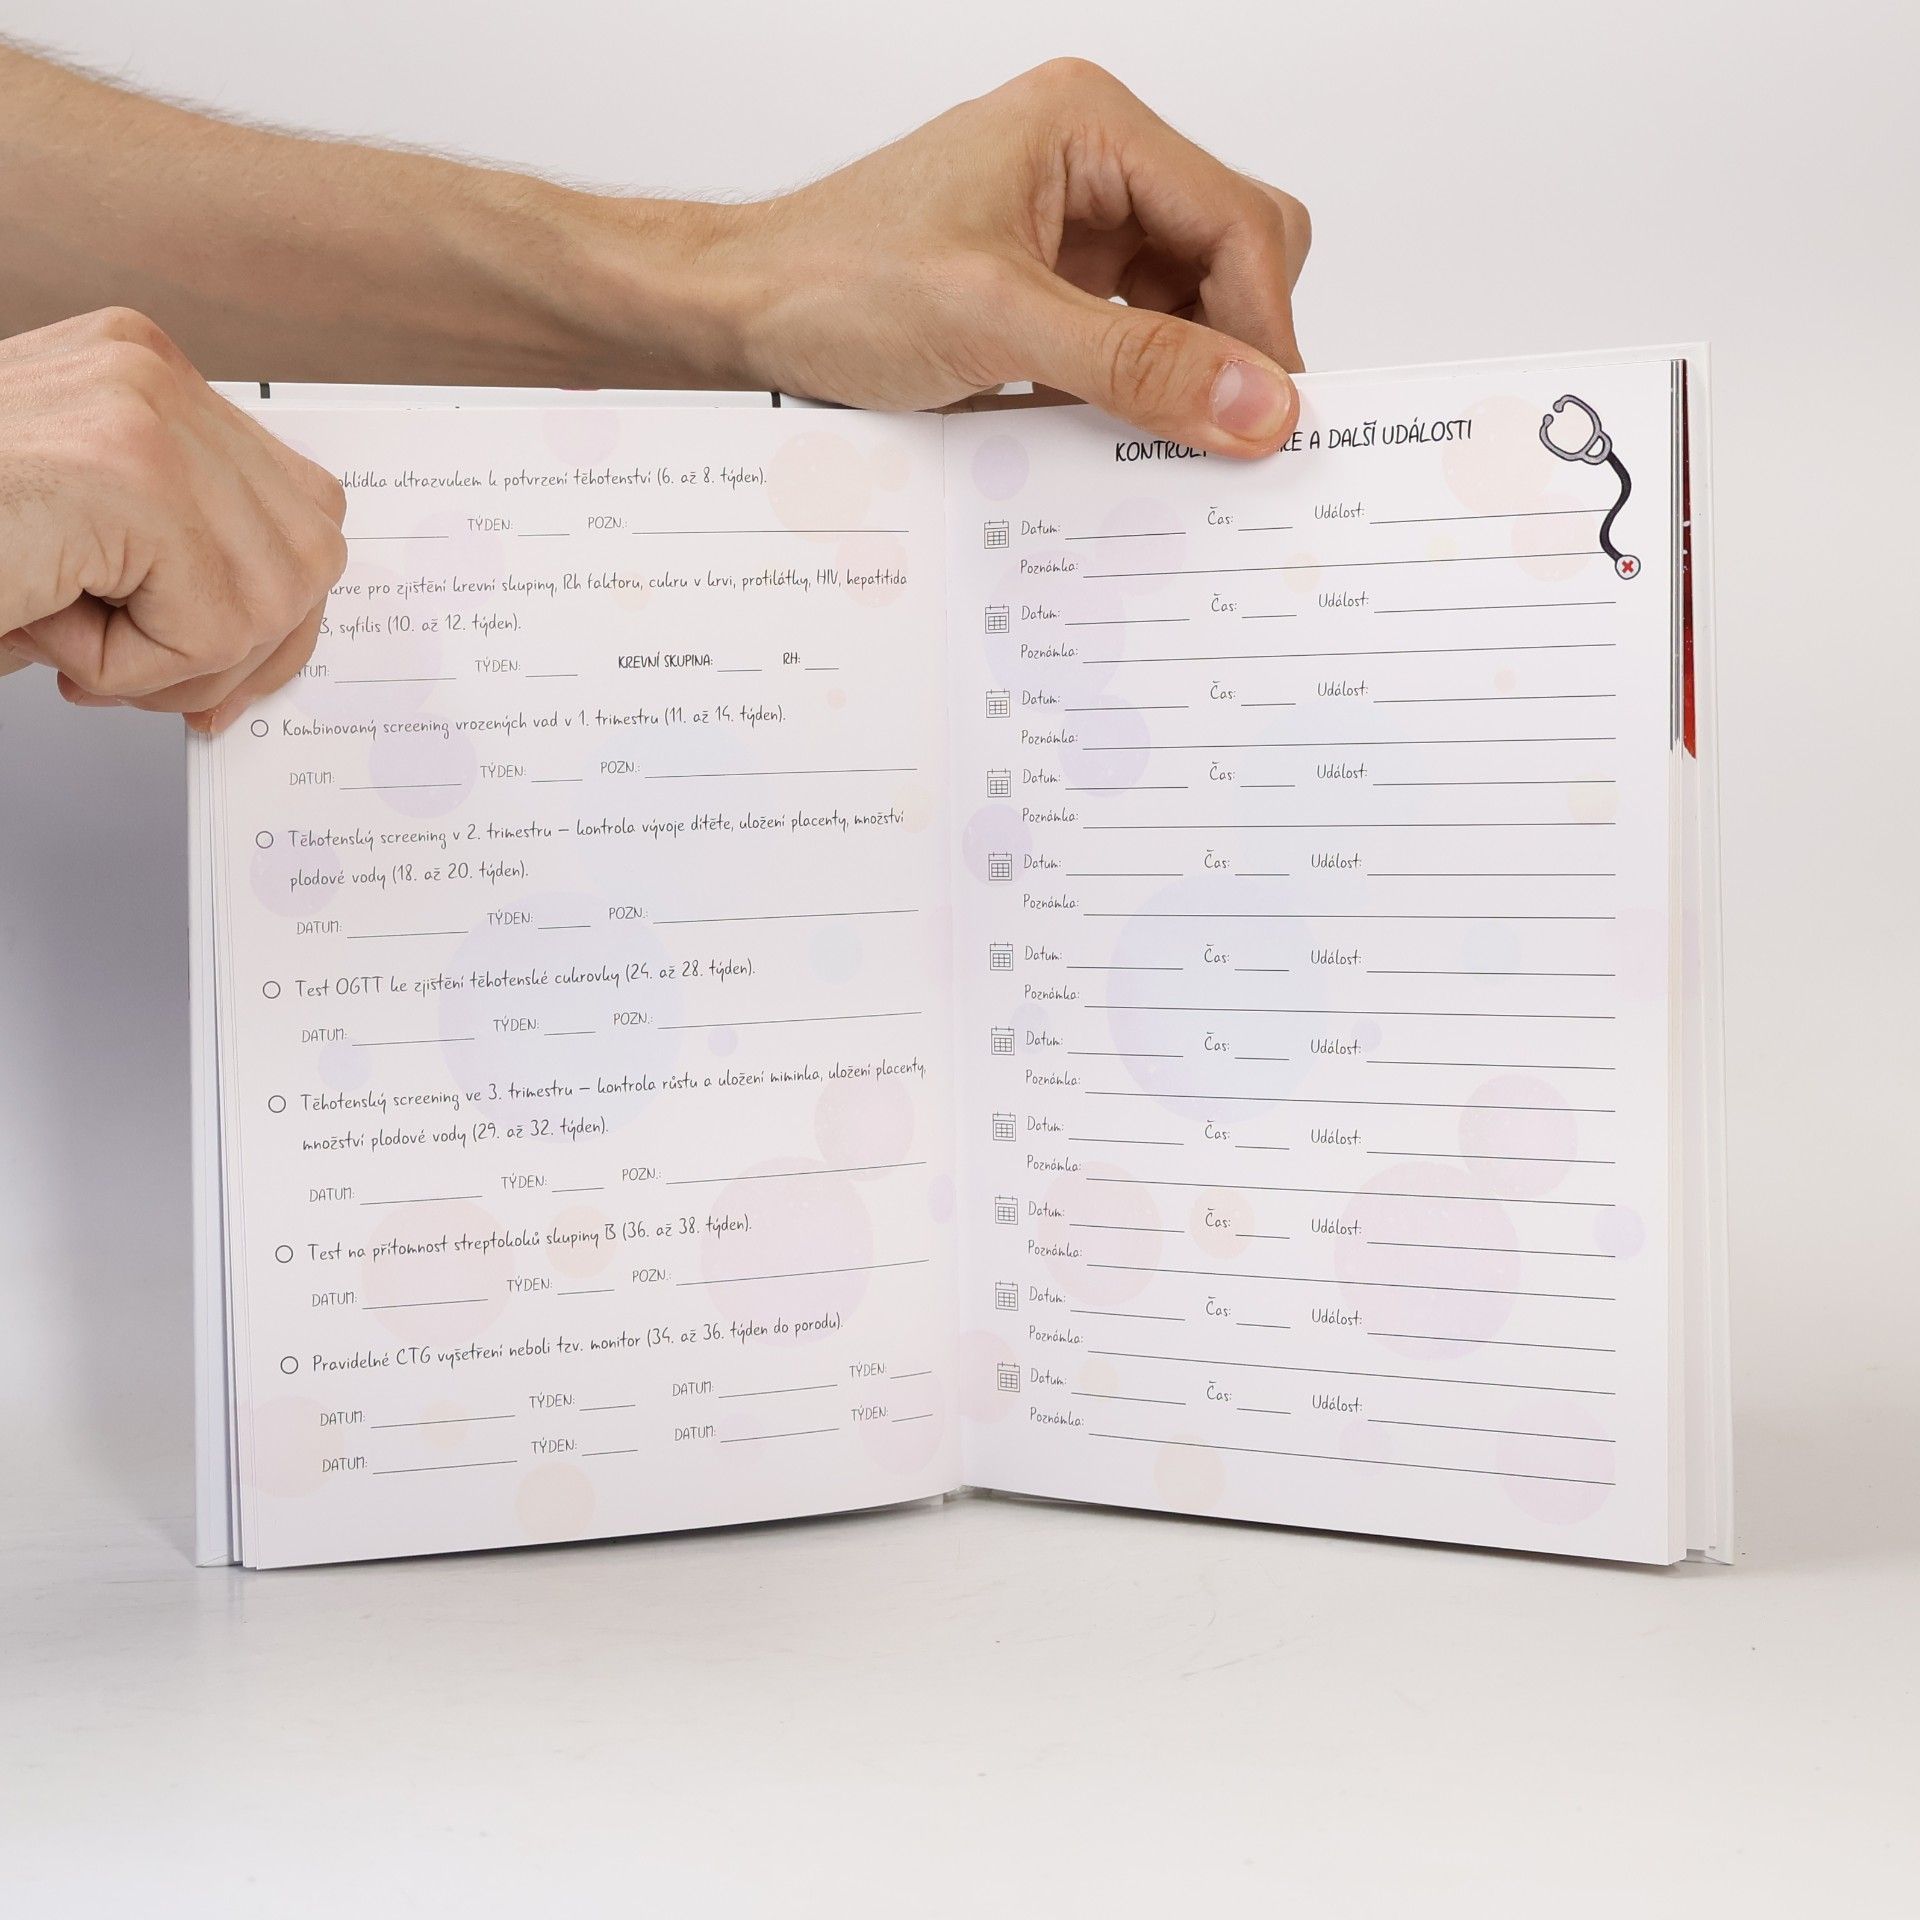 ultrazvukem k potvrzení těhotenství (6. až 8. týden).
TÝDEN: POZN.:
pro zjištění krevní skupiny, Rh faktoru, cukru v krvi, protilátky, HIV, hepatitida
B, syfilis (10. až 12. týden).
TÝDEN: KREVNÍ SKUPINA: RH:
Kombinovaný screening vrozených vad v 1. trimestru (11. až 14. týden).
DATUM: TÝDEN: POZN.:
Těhotenský screening v 2. trimestru – kontrola vývoje dítěte, uložení placenty, množství
plodové vody (18. až 20. týden).
DATUM: TÝDEN: POZN.:
Test OGTT ke zjištění těhotenské cukrovky (24. až 28. týden).
DATUM: TÝDEN: POZN.:
Těhotenský screening ve 3. trimestru – kontrola růstu a uložení miminka, uložení placenty,
množství plodové vody (29. až 32. týden).
DATUM: TÝDEN: POZN.:
Test na přítomnost streptokoků skupiny B (36. až 38. týden).
DATUM: TÝDEN: POZN.:
Pravidelné CTG vyšetření neboli tzv. monitor (34. až 36. týden do porodu).
DATUM: TÝDEN: DATUM: TÝDEN:
DATUM: TÝDEN: DATUM: TÝDEN:
A DALŠÍ UDÁLOSTI
Datum: Čas: Událost:
Poznámka:
Datum: Čas: Událost:
Poznámka:
Datum: Čas: Událost:
Poznámka:
Datum: Čas: Událost:
Poznámka:
Datum: Čas: Událost:
Poznámka:
Datum: Čas: Událost:
Poznámka:
Datum: Čas: Událost:
Poznámka:
Datum: Čas: Událost:
Poznámka:
Datum: Čas: Událost:
Poznámka:
Datum: Čas: Událost:
Poznámka:
Datum: Čas: Událost:
Poznámka: